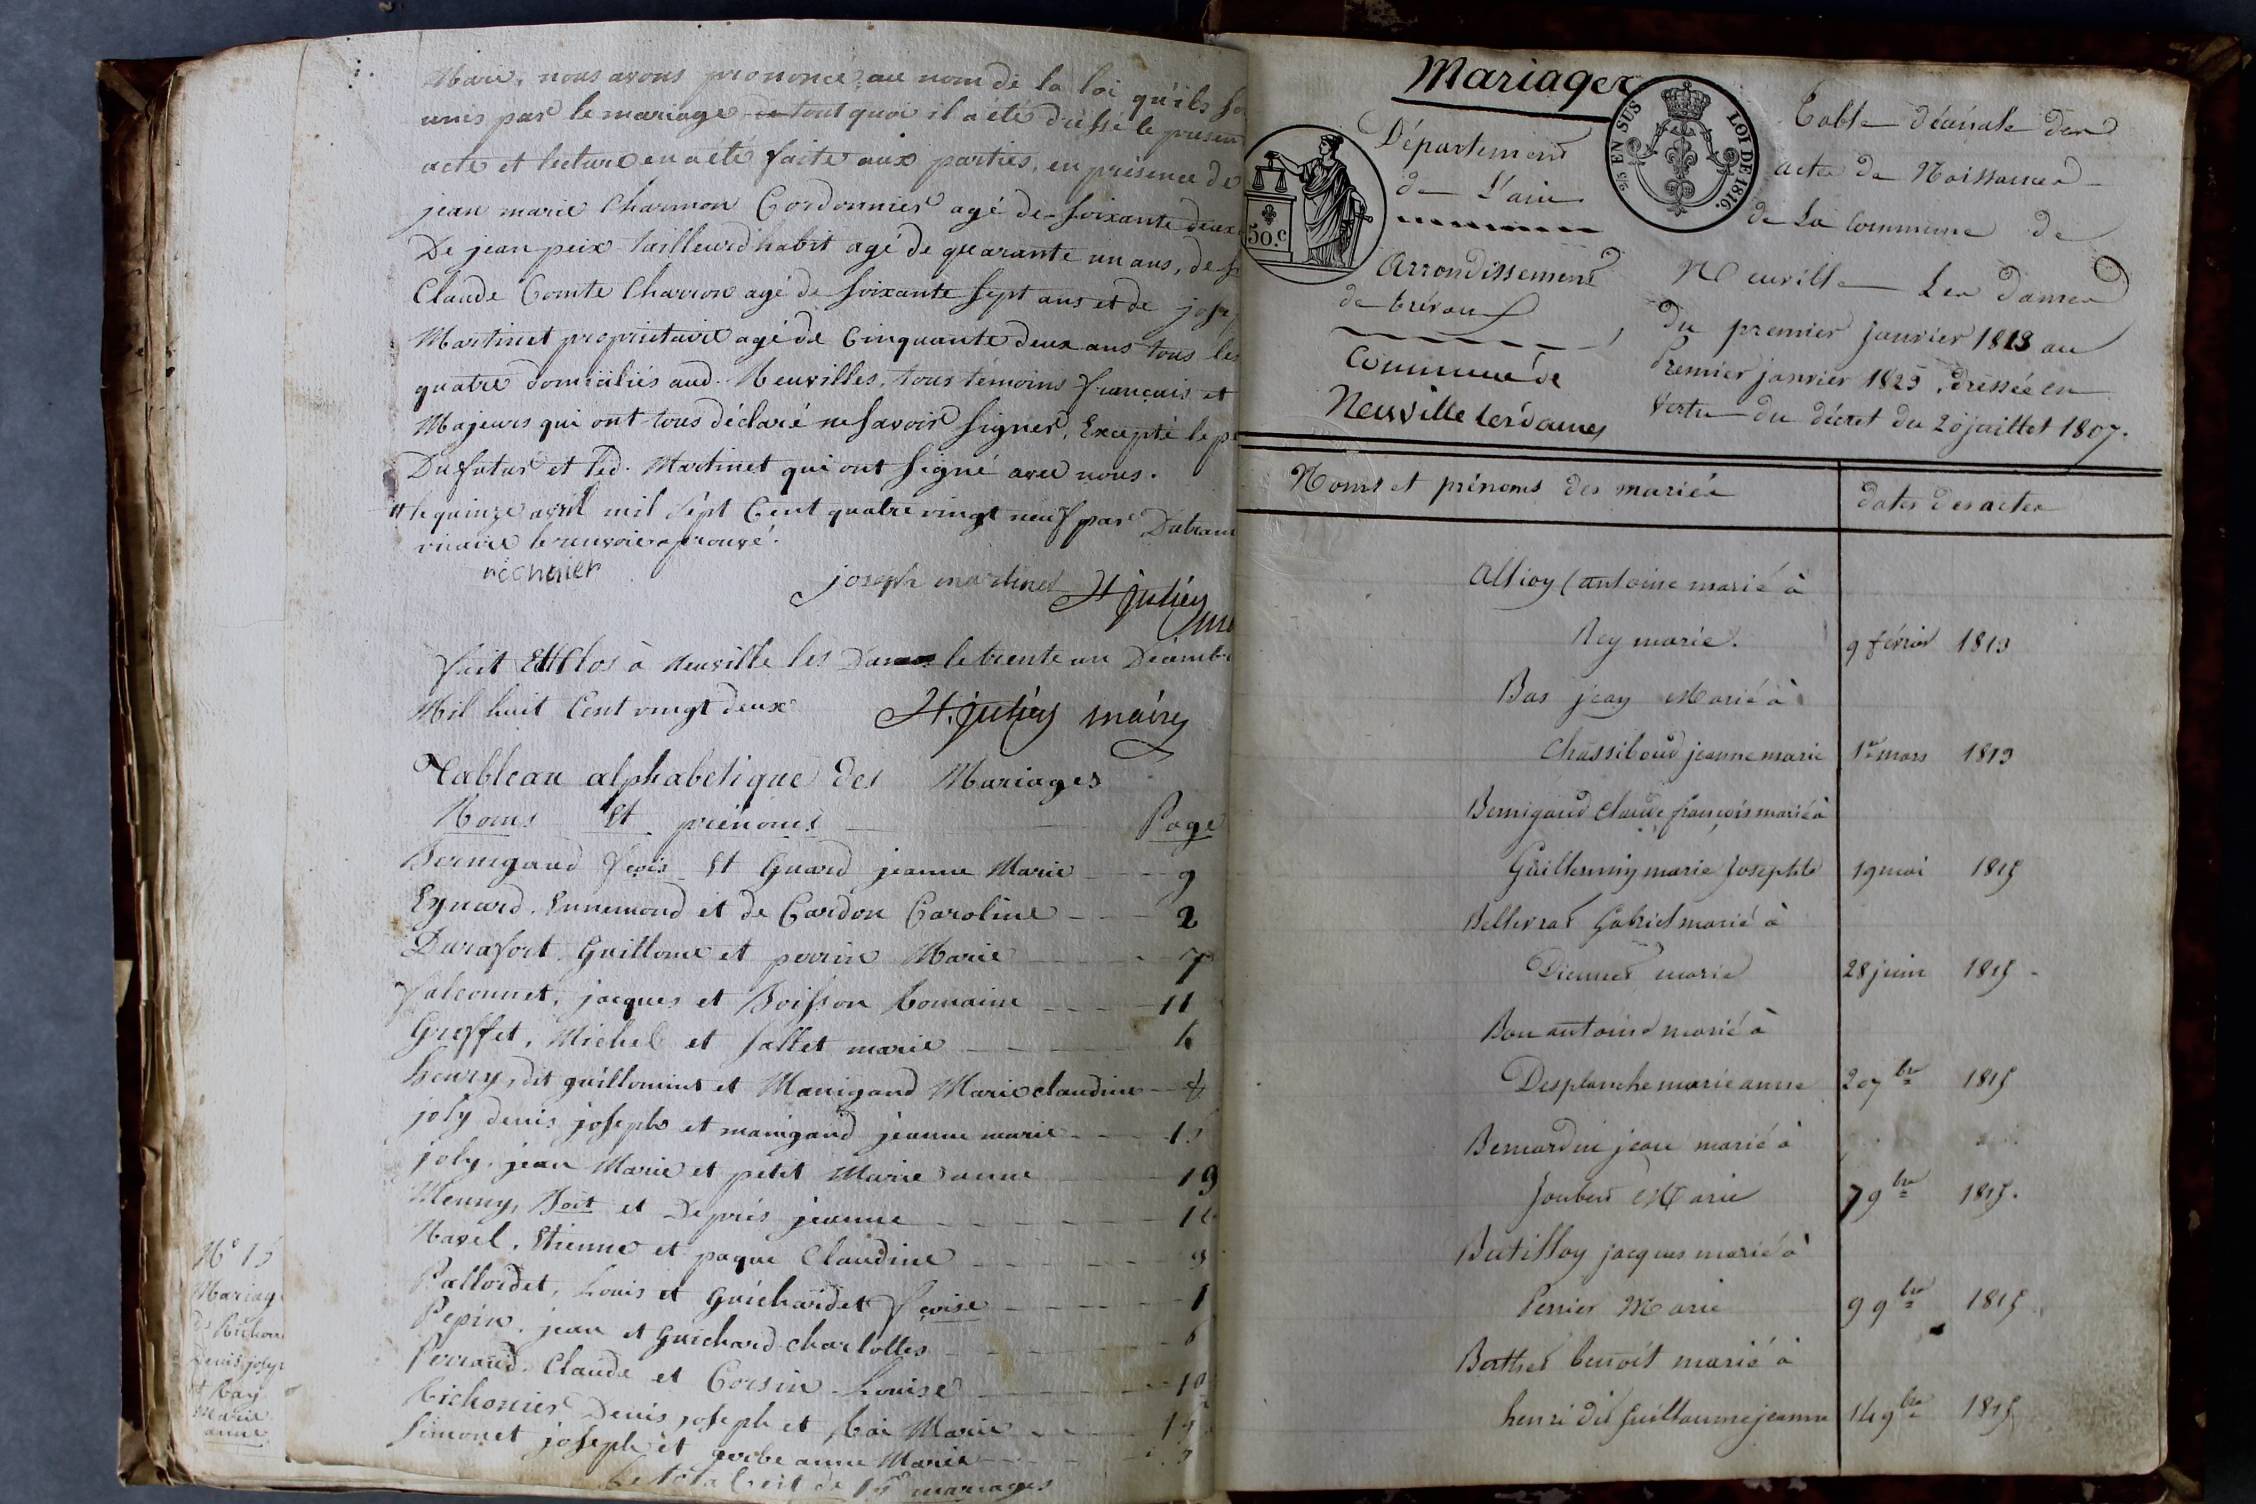 Marié, nous avons prononcé au nom de la loi qu'ils so
unis par le mariage de tout quoi il a été dressé le presen
acte et lecture en a été faite aux parties, en présence de
jean marie Charmon Cordonnier agé de soixante deux
De jean peix tailleur d'habit agé de quarante un ans, de
Claude Comte Charron agé de soixante sept ans et de jose
Martinet proprietaire agé de Cinquante deux ans tous les
quatre domiciliés aud. Neuvilles, tous témoins français et
Majeurs qui ont tous déclaré ne savoir signer, Excepté le pe
Du futur et led. Martinet qui ont signé avec nous.
le quinze avril mil sept Cent quatre vingt neuf par
le renvoie aprouvé.
joseph martinet St julien
fait Et Clos à neuville les Dames le trente un Décemb
Mil huit Cent vingt deux St. julien maire
Tableau alphabetique des Mariages
Noms Et prénoms Page
Bernigaud fçois Et Guard jeanne Marie 9
Eynard, Ennemond et de Cardon Caroline 2
Durafort, Guillome et perrin Marie 7
falconnet, jacques et Boisson Romaine 11
Greffet, Michel et fallet marie
henry, dit guillomint et Manigand Marie claudine
joly denis joseph et manigand jeanne marie
joly, jean Marie et petit Marie anne
Menny, Boit et Després jeanne
Navel, Etienne et paque Claudine
Palloidet, Louis et Guichardet fçoise 1
Pepin, jean et Guichard charlottes 6
Perraud, Claude et Corsin Louise 10
Richonier Denis joseph et Rai Marie
Simonet joseph et gerbe anne Marie
Le total Est de mariages
N° 15
Mariag
Denis josep
et Ray
Marie
anne
Mariages
50.c
2/5 EN SUS LOI DE 1816.
Département
de L'ain
Arrondissement
de trévoux
Commune de
Neuville les dames
Table décénale des
actes de Naissances
de La Commune de
Neuville Les Dames
du premier janvier 1813 au
Premier janvier 1823, dressée en
Vertu du décret du 20 juillet 1807.
Noms et prénoms des mariés dates des actes
Allioy (antoine marié à
Rey marie. 9 février 1813
Bas jean Marié à
Chassiboud jeanne marie 1er mars 1813
Bernigaud Claude françois marié à
Guillermin marie Josephte 19 mai 1815
Gabriel marié à
marie 28 juin 1815
Bon antoine marié à
Desplanche marie anne 20 7bre 1815
Bernardin jean marié à
Joubert Marie 7 9bre 1815.
Batilloy jacques marié à
Perrier Marie 9 9bre 1815
Berthet benoit marié à
henri dit Guillaume jeanne 14 9bre 1815